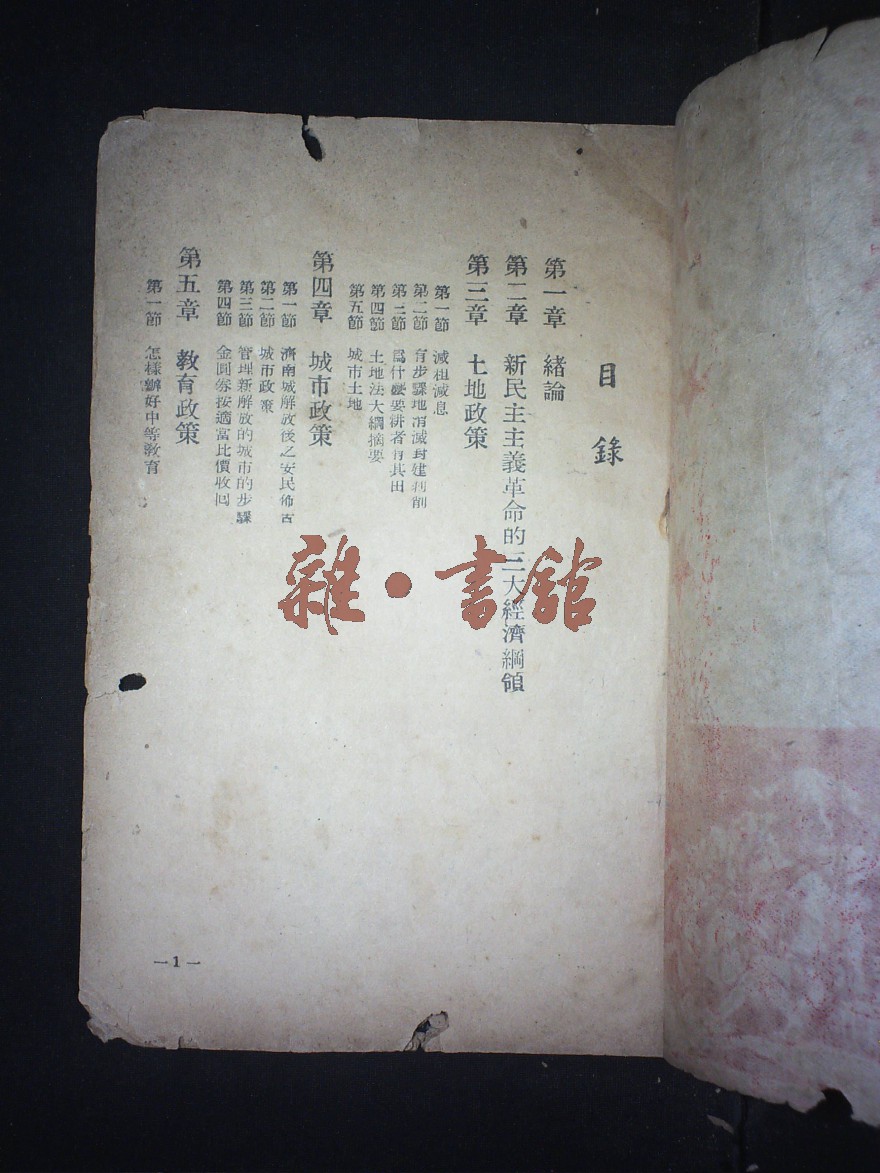 目錄
第一章 緒論
第二章 新民主主義革命的三大經濟綱領
第三章 土地政策
第一節 減租減息
第二節 有步驟地消滅封建剝削
第三節 爲什麽要耕者有其田
第四節 土地法大綱摘要
第五節 城市土地
第四章 城市政策
第一節 濟南城解放後之安民佈吿
第二節 城市政策
第三節 管理新解放的城市的步驟
第四節 金圓券按適當比價收回
第五章 教育政策
第一節 怎樣辦好中等敎育
—1—
雜·書館